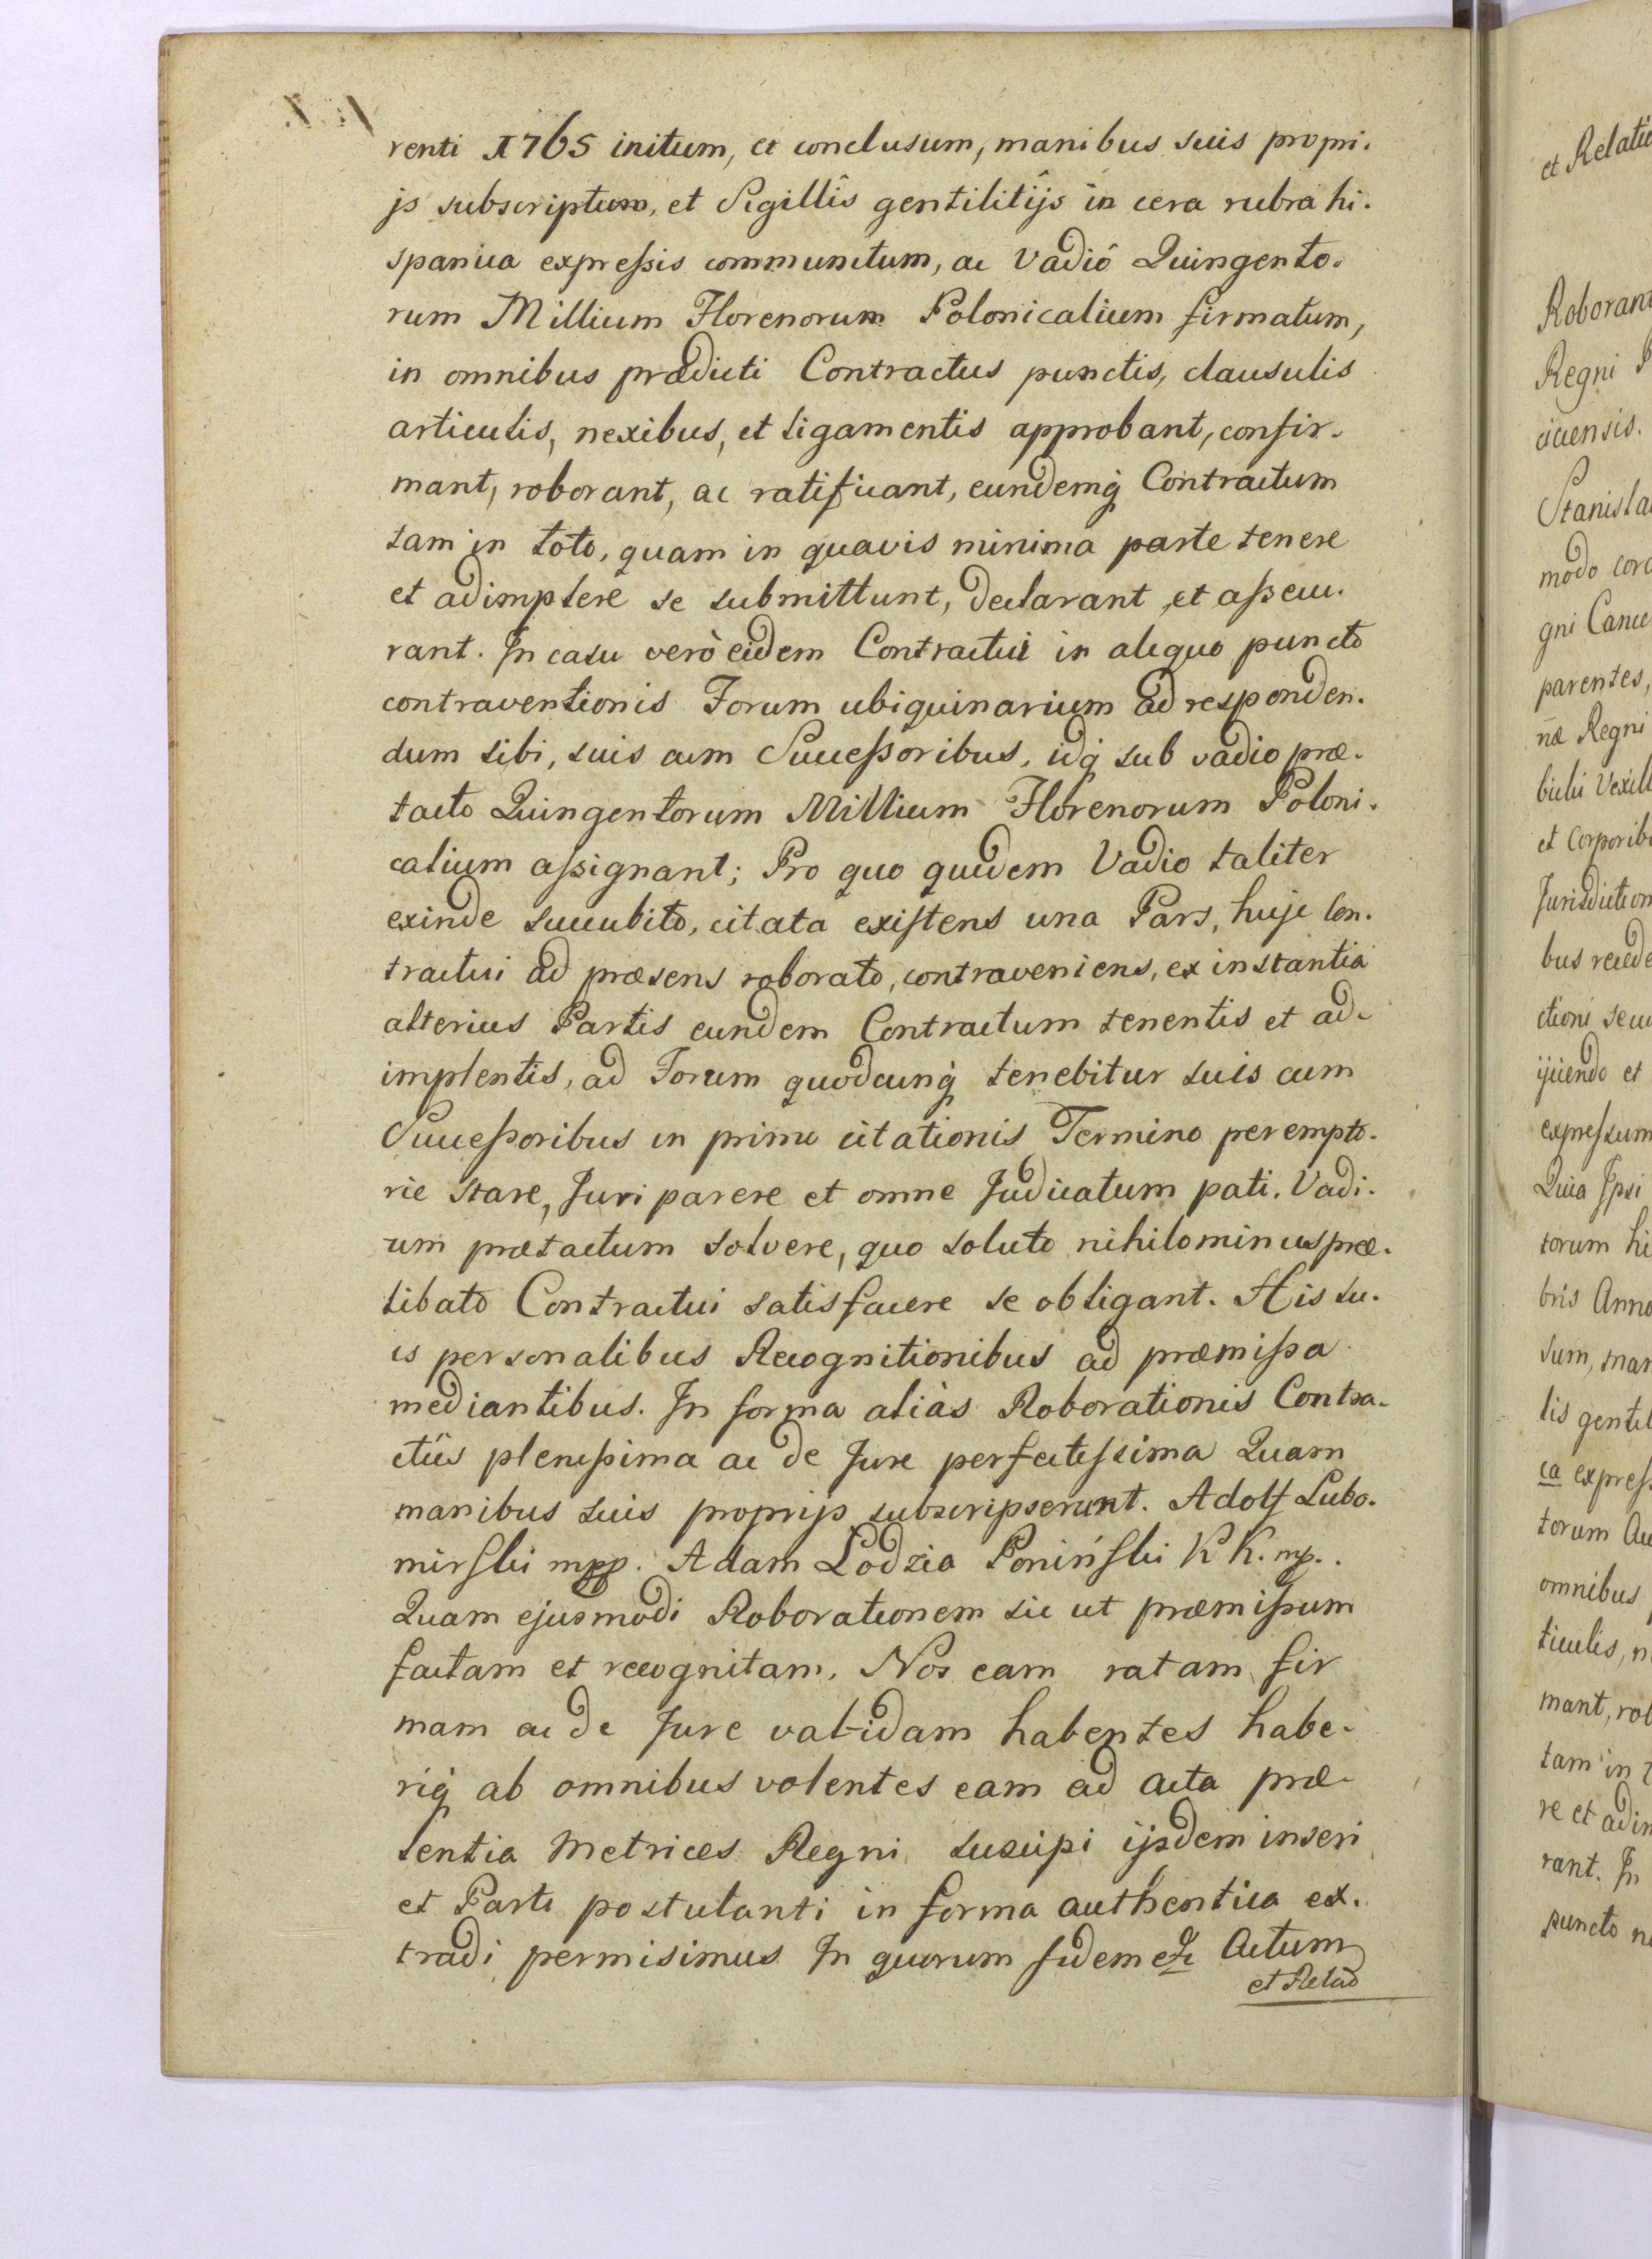 renti 1765 initum, et conclusum, manibus suis propri.
js subscriptum, et Sigillîs gentilitijs in cera rubra hi.
spanica expressis communitum, ac Vadiô Quingento.
rum Millium Florenorum Polonicalium firmatum,
in omnibus prædicti Contractus punctis, clausulis
articulis, nexibus, et ligamentis approbant, confir.
mant, roborant, ac ratificant, eundemq̨ Contractum
tam in toto, quam in quavis minima parte tenere
et adimplere se submittunt, declarant, et assecu.
rant. In casu verò eidem Contractui in aliquo puncto
contraventionis Forum ubiquinarium ad responden.
dum sibi, suis cum Successoribus, idq̨ sub vadio præ.
tacto Quingentorum Millium Florenorum Poloni.
calium assignant; Pro quo quidem Vadio taliter
exinde succubito, citata existens una Pars, huje Con.
tractui ad præsens roborato, contraveniens, ex instantia
alterius Partis eundem Contractum tenentis et ad.
implentis, ad Forum quodcunq̨ tenebitur suis cum
Successoribus in primo citationis Termino perempto.
rie stare, Juri parere et omne Judicatum pati. Vadi.
um prætactum solvere, quo soluto nihilominus præ.
libato Contractui satisfacere se obligant. His su.
is personalibus Recognitionibus ad præmissa
mediantibus. In forma aliàs Roborationis Contra.
ctûs plenissima ac de Jure perfectissima Quam
manibus suis proprijs subscripserunt. Adolf Lubo.
mirski mpp. Adam Lodzia Poniński K K. mp.
Quam ejusmodi Roborationem sic ut præmissum
factam et recognitam, Nos eam ratam fir
mam ac de Jure validam habentes habe.
riq̨ ab omnibus volentes eam ad acta præ
sentia Metrices Regni suscipi ijsdem inseri
et Parti postulanti in forma authentica ex.
tradi permisimus In quorum fidem etc Actum
et Relatio
et Relatio
Roborant
Regni
cicensis.
Stanisla
modo cor
gni Canc
parentes,
næ Regni
bilii Vexil
et Corporib
Jurisdiction
bus recede
ctioni
ijciendo et
expressum
Quia Ipsi
torum hi
bris Anno
sum, man
lis gentil
ca express
torum
omnibus
ticulis, n
mant, rob
tam in
re et adim
rant. In
puncto